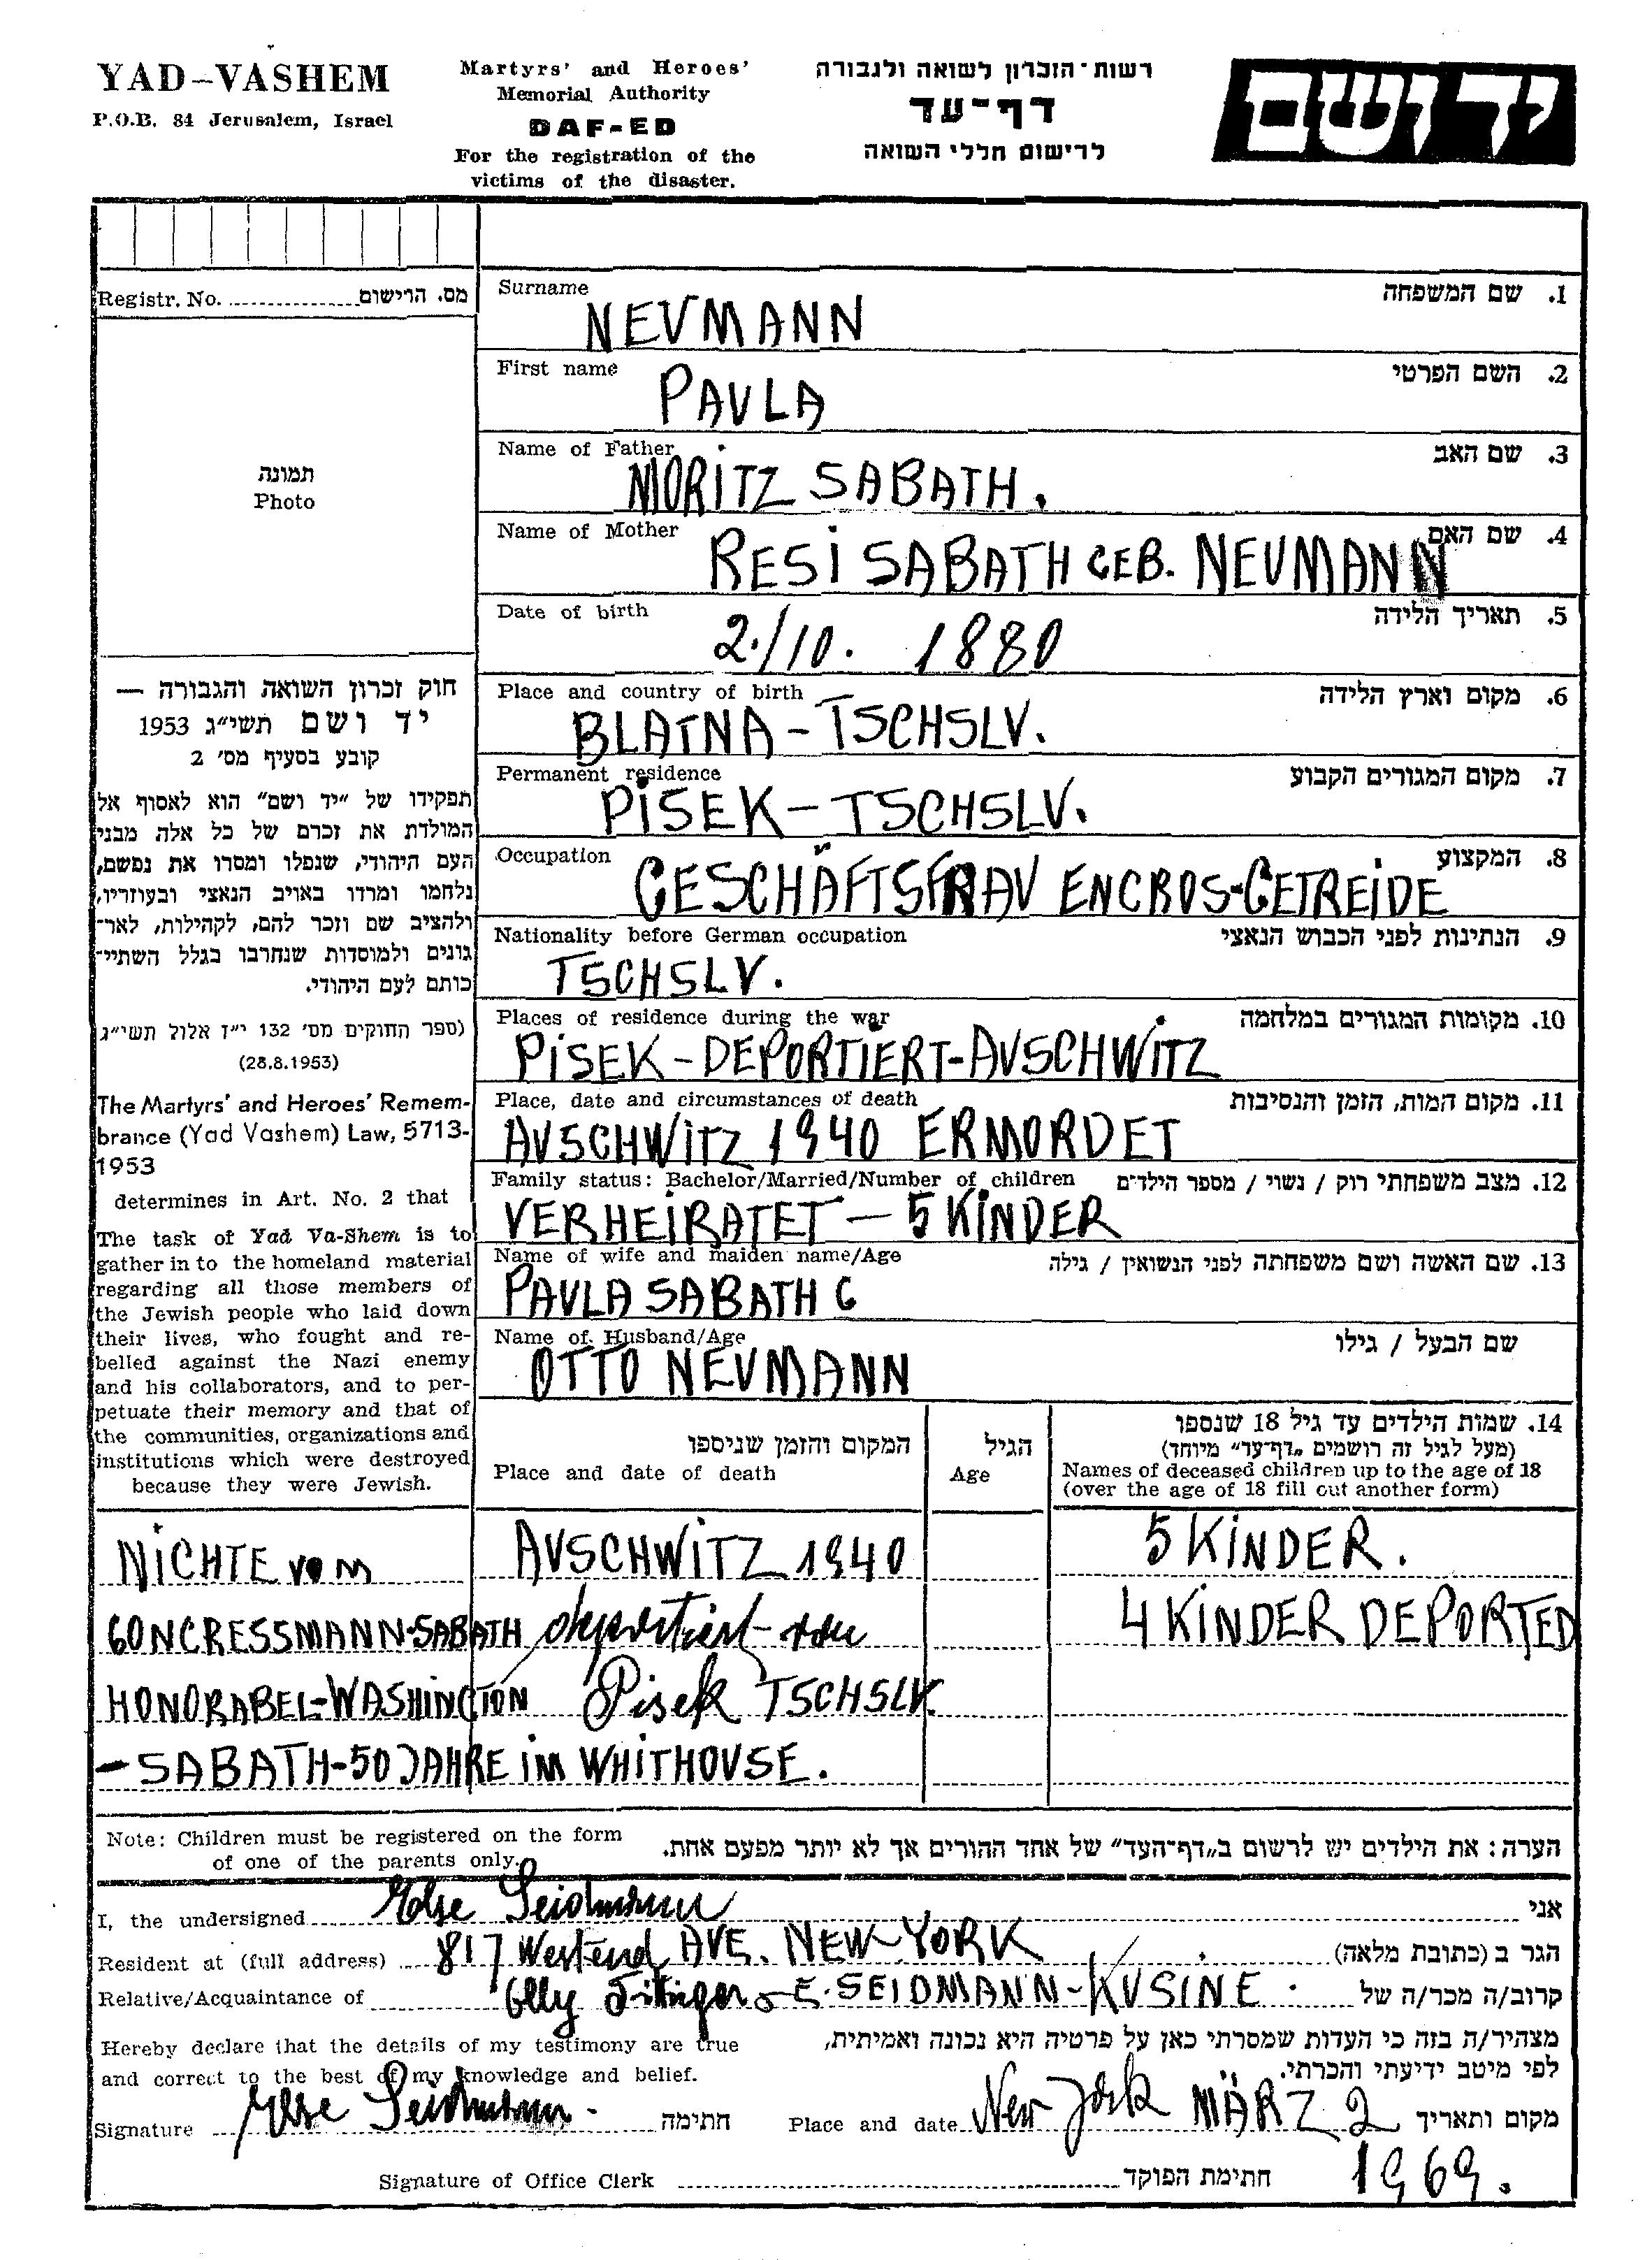 YAD-VASHEM
P.O.B. 84 Jerusalem, Israel
Martyrs' and Heroes'
Memorial Authority
DAF-ED
For the registration of the
victims of the disaster.
רשות-הזכרון לשואה ולגבורה
דף-עד
לרישום חללי השואה
יד ושם
Registr. No. מס. הרישום
תמונה
Photo
חוק זכרון השואה והגבורה —
יד ושם תשי"ג 1953
קובע בסעיף מס' 2
תפקידו של "יד ושם" הוא לאסוף אל
המולדת את זכרם של כל אלה מבני
העם היהודי, שנפלו ומסרו את נפשם,
נלחמו ומרדו באויב הנאצי ובעוזריו,
ולהציב שם וזכר להם, לקהילות, לאר-
גונים ולמוסדות שנחרבו בגלל השתיי-
כותם לעם היהודי.
(ספר החוקים מס' 132 י"ז אלול תשי"ג
(28.8.1953)
The Martyrs' and Heroes' Remem-
brance (Yad Vashem) Law, 5713-
1953
determines in Art. No. 2 that
The task of Yad Va-Shem is to
gather in to the homeland material
regarding all those members of
the Jewish people who laid down
their lives, who fought and re-
belled against the Nazi enemy
and his collaborators, and to per-
petuate their memory and that of
the communities, organizations and
institutions which were destroyed
because they were Jewish.
Surname 1. שם המשפחה
NEVMANN
First name 2. השם הפרטי
PAVLA
Name of Father 3. שם האב
MORITZ SABATH.
Name of Mother 4. שם האם
RESI SABATH GEB. NEUMANN
Date of birth 5. תאריך הלידה
2./10. 1880
Place and country of birth 6. מקום וארץ הלידה
BLATNA - TSCHSLV.
Permanent residence 7. מקום המגורים הקבוע
PISEK - TSCHSLV.
Occupation 8. המקצוע
GESCHÄFTSFRAV ENGROS-GETREIDE
Nationality before German occupation 9. הנתינות לפני הכבוש הנאצי
TSCHSLV.
Places of residence during the war 10. מקומות המגורים במלחמה
PISEK-DEPORTIERT-AVSCHWITZ
Place, date and circumstances of death 11. מקום המות, הזמן והנסיבות
AVSCHWITZ 1940 ERMORDET
Family status: Bachelor/Married/Number of children 12. מצב משפחתי רוק / נשוי / מספר הילדים
VERHEIRATET - 5 KINDER
Name of wife and maiden name/Age 13. שם האשה ושם משפחתה לפני הנשואין / גילה
PAVLA SABATH G
Name of Husband/Age שם הבעל / גילו
OTTO NEVMANN
המקום והזמן שניספו
Place and date of death
הגיל
Age
14. שמות הילדים עד גיל 18 שנספו
(מעל לגיל זה רושמים "דף-עד" מיוחד)
Names of deceased children up to the age of 18
(over the age of 18 fill out another form)
NICHTE vom AVSCHWITZ 1940 5 KINDER.
CONGRESSMANN-SABATH deportiert von 4 KINDER DEPORTED
HONORABEL-WASHINGTON Pisek TSCHSLV.
-SABATH-50 JAHRE IM WHITHOVSE.
Note: Children must be registered on the form
of one of the parents only.
הערה: את הילדים יש לרשום ב"דף-העד" של אחד ההורים אך לא יותר מפעם אחת.
I, the undersigned Else Seidmann אני
Resident at (full address) 817 Westend AVE. NEW-YORK הגר ב (כתובת מלאה)
Relative/Acquaintance of E. SEIDMANN-KVSINE קרוב/ה מכר/ה של
Hereby declare that the details of my testimony are true
and correct to the best of my knowledge and belief.
מצהיר/ה בזה כי העדות שמסרתי כאן על פרטיה היא נכונה ואמיתית,
לפי מיטב ידיעתי והכרתי.
Signature Else Seidmann - חתימה Place and date New York MÄRZ 2 מקום ותאריך
1969.
Signature of Office Clerk חתימת הפוקד